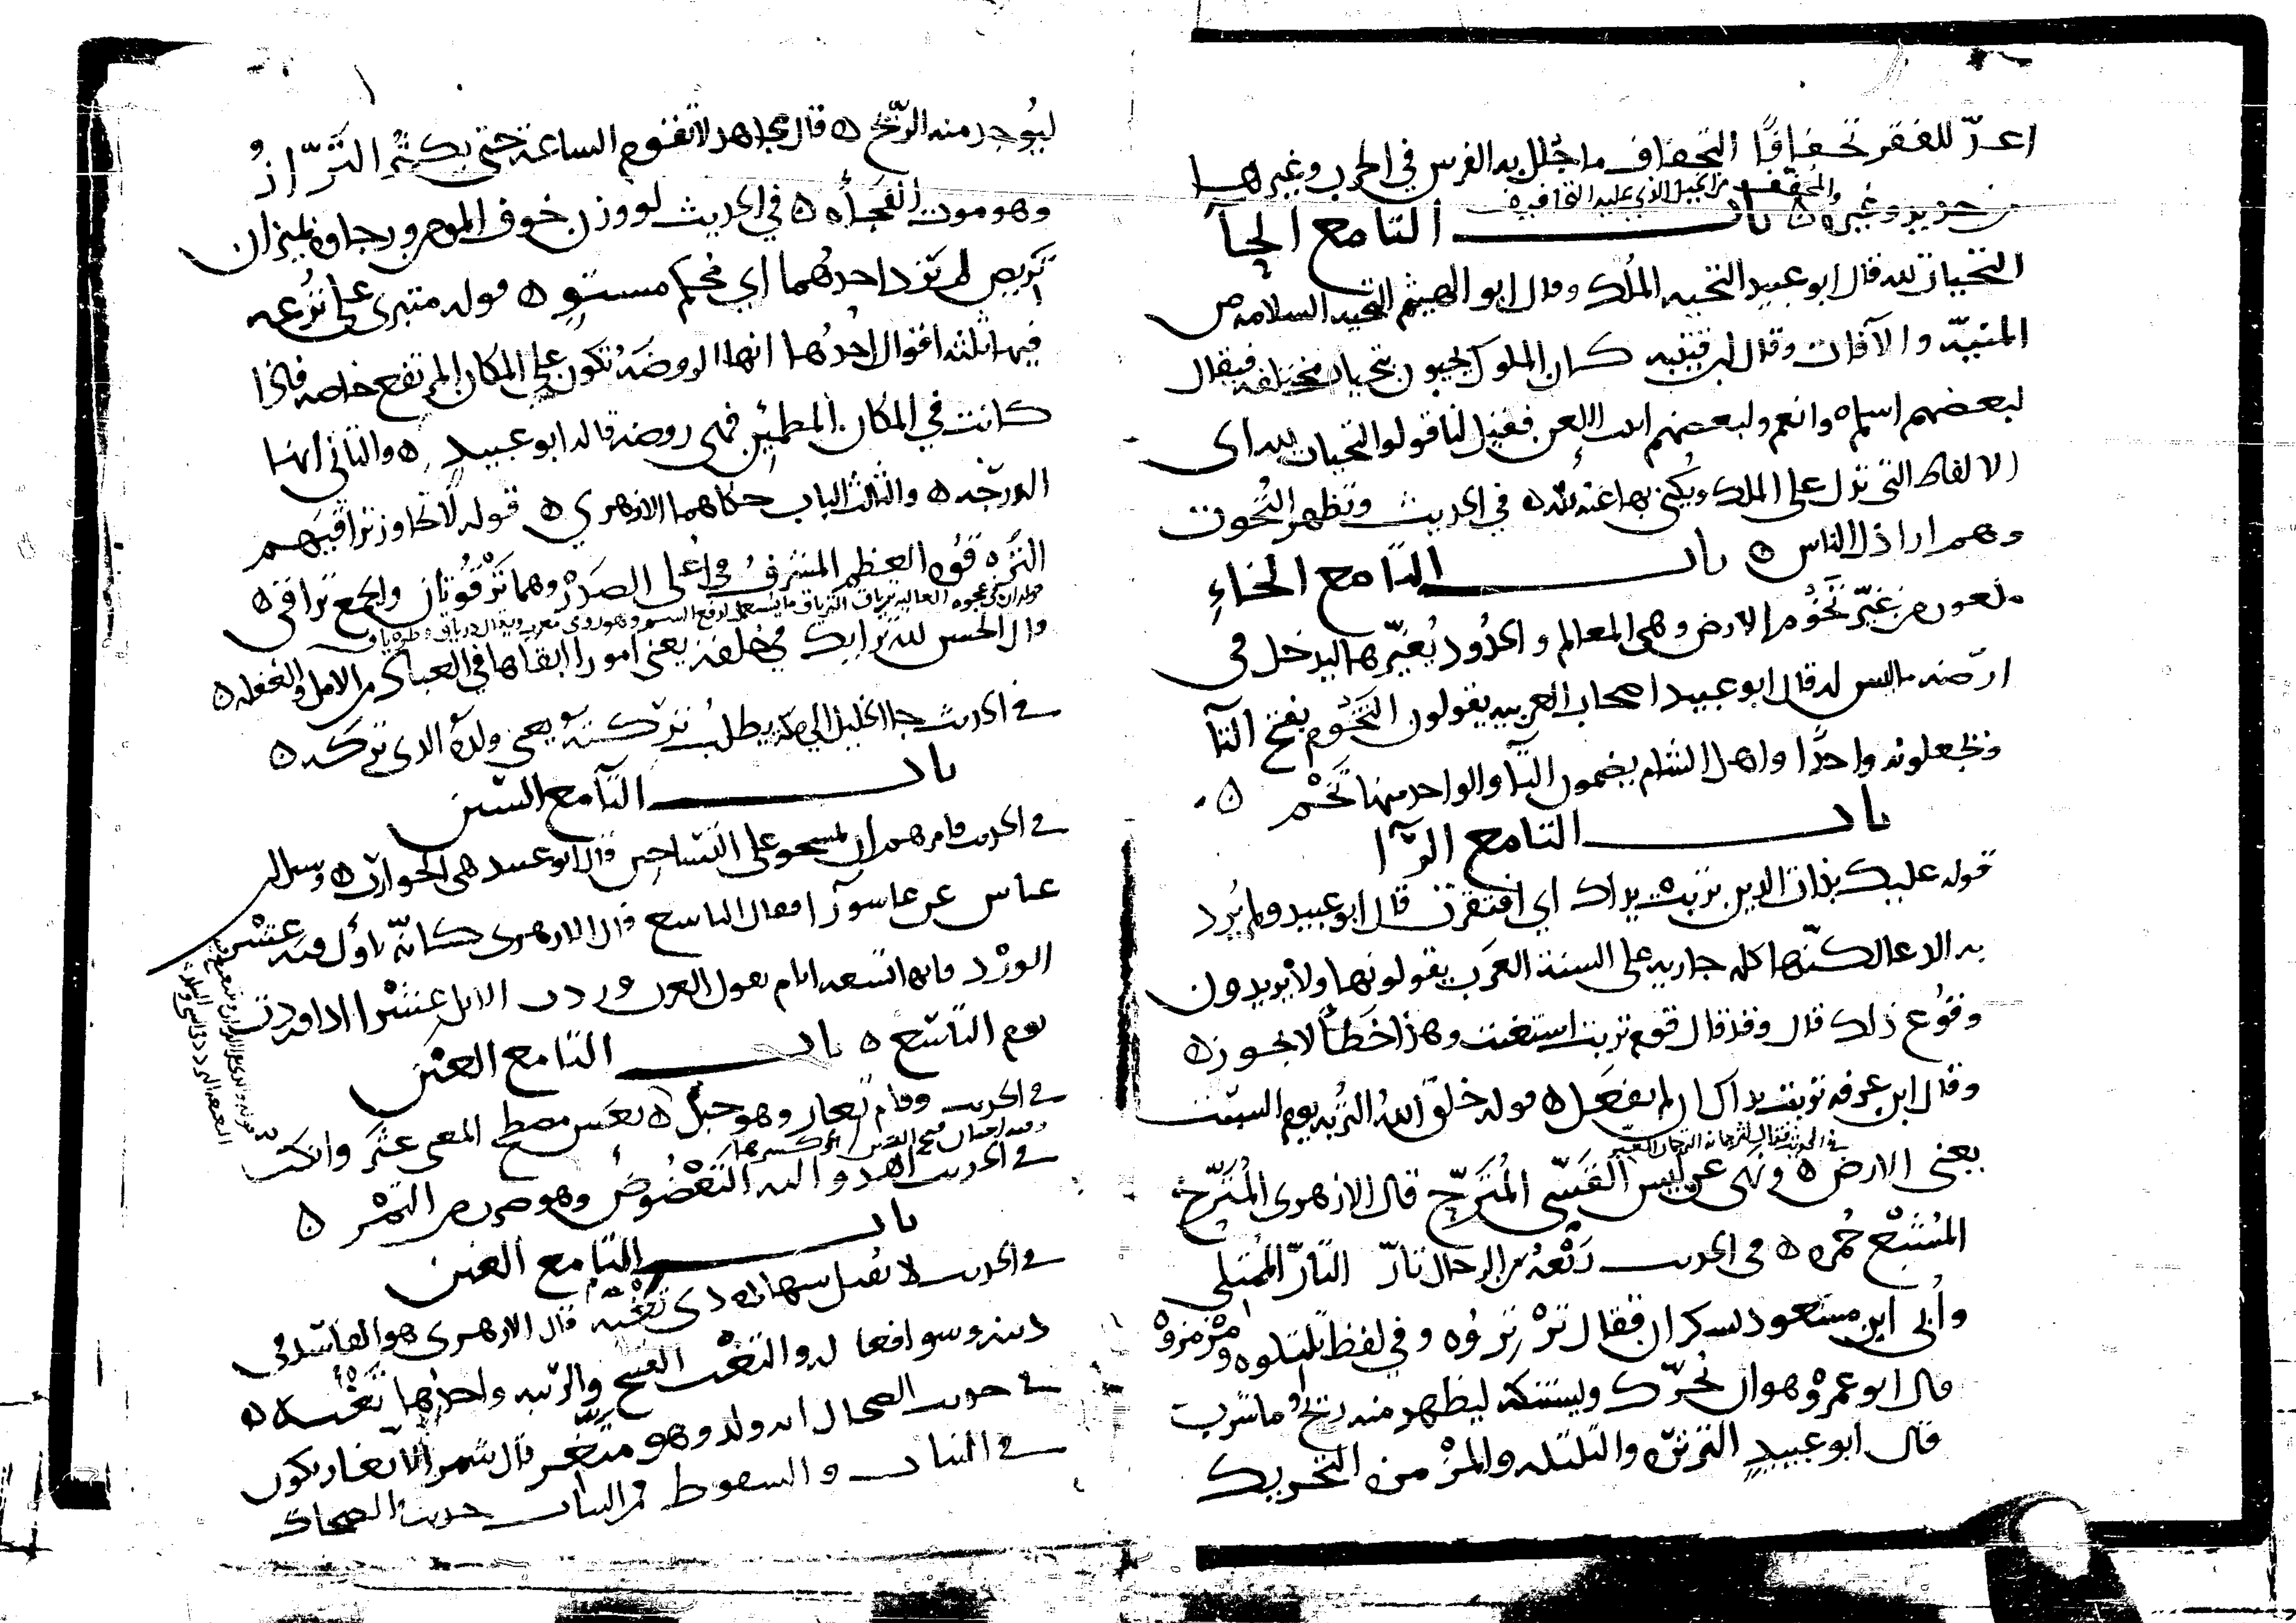 اعدّ للفقر تجفافًا التجفاف ما جُلل به الفرس في الحرب وغيرها
من حديد وغيره ٥ باب التا مع الحآ
والمُجفّف من الخيل الذي عليه التجافيف
التحيات لله قال ابو عبيد التحيه المُلك وقال ابو الهيثم التحيه السلامه من
المنيّه والآفات وقال ابن قتيبه كان الملوك يحيون بتحيات مختلفه فيقال
لبعضهم اسلم وانعم ولبعضهم ابيت اللعن فقيل لنا قولوا التحيات لله اى
الالفاظ التى تدل على الملك ويُكنى بها عنه لله ٥ في الحديث وتظهر التُحوت
وهم اراذل الناس ٥ باب التا مع الخاءِ
ملعون من غيّر تَخُوم الارض وهى المعالم والحدُود يُغيّرها ليدخل فى
ارضه ما ليس له قال ابو عبيد اصحاب العربيه يقولون التَخُوم بفتح التآ
ويجعلونه واحدًا واهل الشام يضمون التآ والواحد منها تَخْم ٥
باب التا مع الرّآ
قوله عليك بذات الدين تربت يداك اي افتقرت قال ابو عبيد ولم يُرد
به الدعا لكنّها كلمه جاريه على السنة العَرَب يقولونها ولا يريدون
وقُوع ذلك قال وقد قال قوم تربت استغنت وهذا خَطأ لا يجوز ٥
وقال ابن عرفه تربت يداك ان لم تفعَل ٥ قوله خلق اللهُ التُربه يوم السبت
في الحديث فقال لترجمانه الترجمان المعبّر
يعنى الارض ٥ ونهى عن لبس القَسّى المُتَرّج قال الازهرى المُتَرّج
المُشبَع حُمره ٥ فى الحديث رَبْعَهٌ من الرجال تارّ التارّ المُمتلى
وأُتى ابن مسعود بسكران فقال تَرْتِرُوه وفي لفظ تَلتلوه ومَزْمزوْه
قال ابو عمرْو هو ان يُحرّك ويستنكه ليظهر منه ريح ما شرب
قال ابو عبيدٍ الترتره والتلتله والمزْمزه التحريك
ليُوجد منه الرّيح ٥ قال مجاهد لا تقوم الساعة حتى يكثُر التَرّازُ
وهو موت الفَجأه ٥ في الحديث لو وزن خوف المومن ورجاوه بميزان
تَريص لم يَزد احدُهما اي محكم مستوٍ ٥ قوله منبرى على تُرعه
فيها ثلثة اقوال احدُها انها الروضَهُ تكون على المكان المرتفع خاصه فاذا
كانت في المكان المطمئن فهى روضه قاله ابو عبيدٍ ٥ والثانى انها
الدرجه ٥ والثالث الباب حكاهما الازهري ٥ قوله لا تجاوز تراقيَهم
الترقُوه العظم المشرف فى اعلى الصَدر وهما تَرْقُوتان والجمع تراقى ٥
قوله ان فى عجوه العاليه ترياق الترياق ما يستعمل لدفع السم وهو رومى معرب ويقال درياق وطرياق
قال الحسن لله ترايك فى خلقه يعنى امورا ابقاها في العباد من الامل والغفله ٥
في الحديث جا الخليل الى مكة يطلب تركته يعنى ولدَه الذى تركه ٥
باب التآ مع السين
في الحديث فامرهم ان يمسحو على التساخين قال ابو عبيد هى الخوارت ٥ وسيل ابن
عباس عن عاسورآ فقال التاسع قال الازهرى كانّه تاوّل فيه عشْر
الورْد فانها تسعه ايام يقول العرب وردت الابل عشْرًا اذا وردت
يوم التاسع ٥ باب التا مع العين
في الحديث وقام تعار وهو جبل ٥
في الحديث اهدوا اليه التَعْضُوضُ وهو ضرب من التمْر ٥
باب التا مع الغين
في الحديث لا تُقبل شهاده ذى تَغْبَه قال الازهرى هو الفاسد فى
دينه وسو افعاله والتغْب القبيح والريبه واحدتها تَغْبَه ٥
في حديث الضحاك انه ولد وهو متّغر قال شمر الاتغار يكون
في النبات والسقوط فمن النبات حديث الضحاك